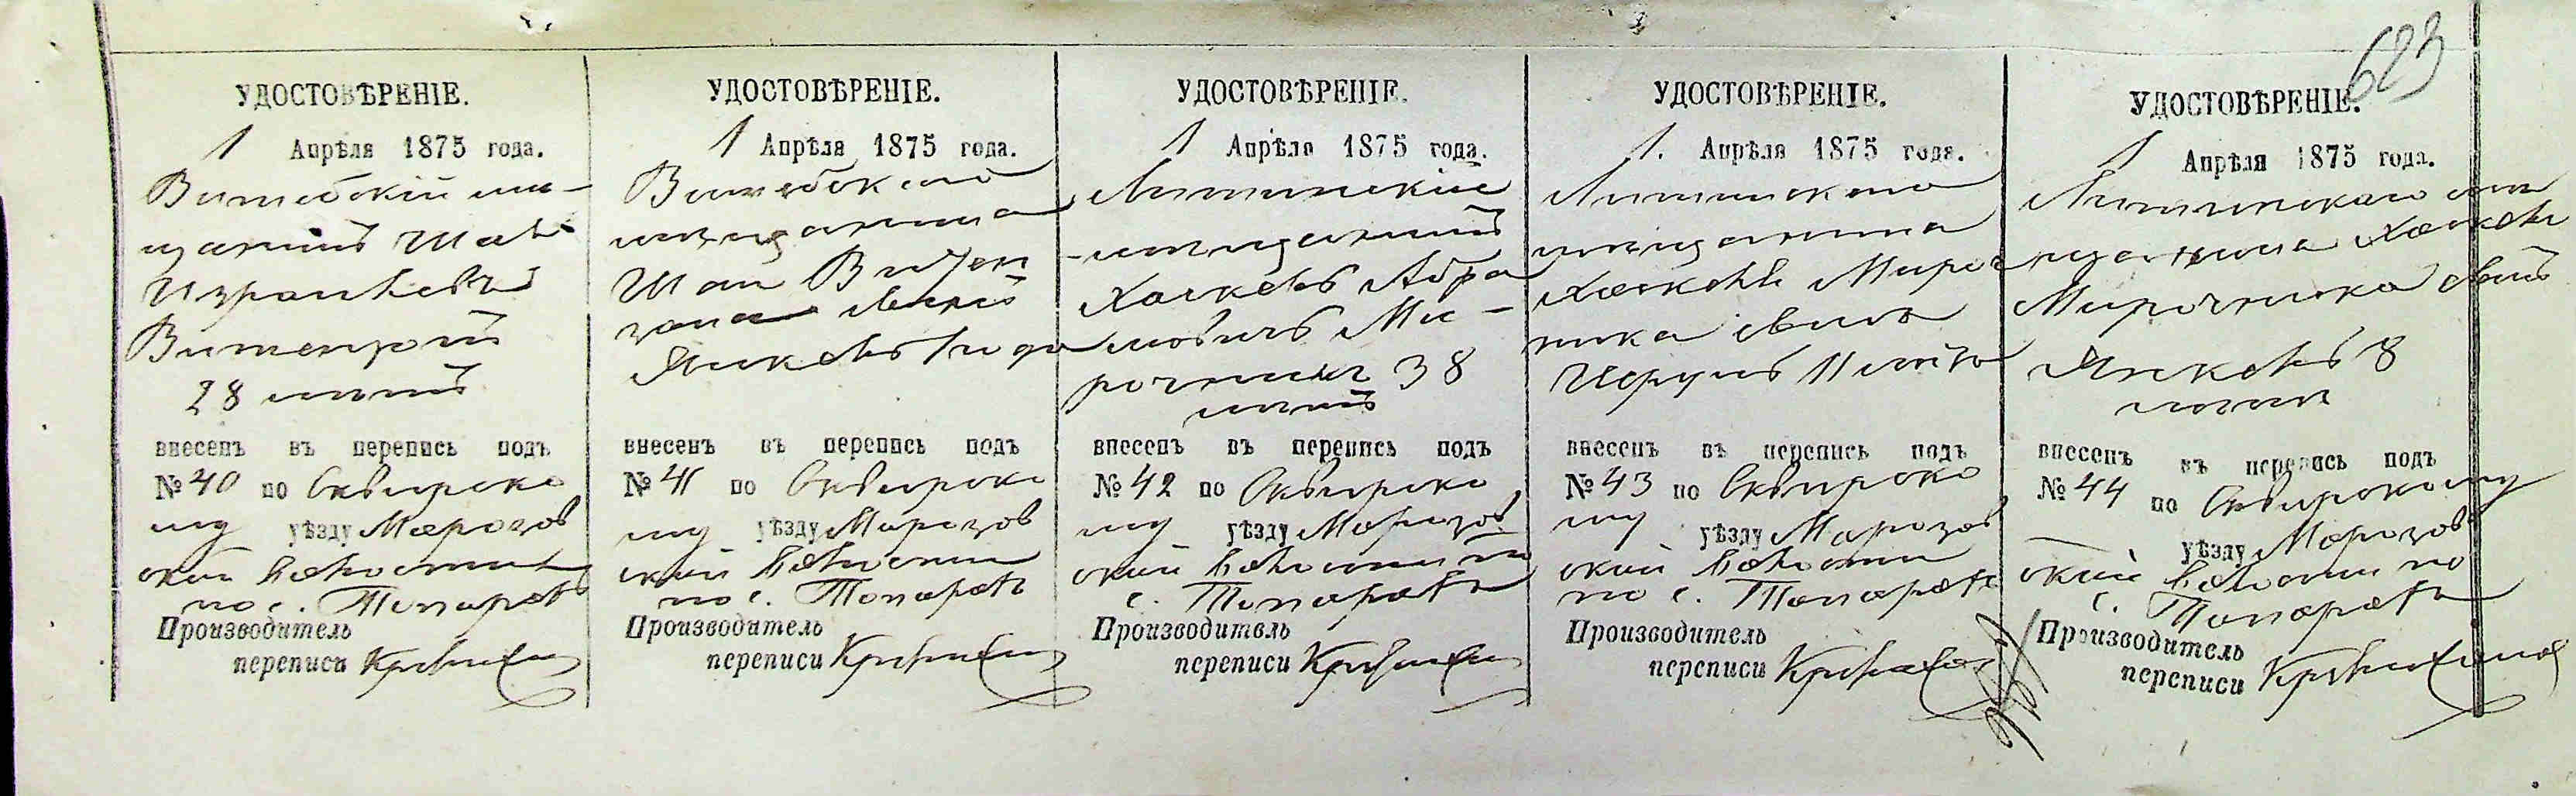 623
УДОСТОВѢРЕНІЕ.
1 Апрѣля 1875 года.
Витебскій мѣ-
щанинъ Шая
Израилевъ
28 лѣтъ
внесенъ въ перепись подъ
№ 40 по Сквирско
му уѣзду Морозов
ской волости
по с. Топоровъ
Производитель
переписи
УДОСТОВѢРЕНІЕ.
1 Апрѣля 1875 года.
Витебскаго
мѣщанина
Шаи
сынъ
Янкевъ 1 года
внесенъ въ перепись подъ
№ 41 по Сквирско
му уѣзду Морозов
ской волости
по с. Топоровъ
Производитель
переписи
УДОСТОВѢРЕНІЕ.
1 Апрѣля 1875 года.
Литинскій
мѣщанинъ
Хаскевъ Абра
мовичъ Ми-
рочникъ 38
лѣтъ
внесенъ въ перепись подъ
№ 42 по Сквирско
му уѣзду Морозов
ской волости по
с. Топоровъ
Производитель
переписи
УДОСТОВѢРЕНІЕ.
1. Апрѣля 1875 года.
Литинскаго
мѣщанина
Хаскеля Мироч
ника сынъ
11 лѣтъ
внесенъ въ перепись подъ
№ 43 по Сквирско
му уѣзду Морозов
ской волости
по с. Топоровъ
Производитель
переписи
УДОСТОВѢРЕНІЕ.
1 Апрѣля 1875 года.
Литинскаго мѣ
щанина Хаскеля
Мирочника сынъ
Янкевъ 8
лѣтъ
внесенъ въ перепись подъ
№ 44 по Сквирскому
уѣзду Морозов
ской волости по
с. Топоровъ
Производитель
переписи